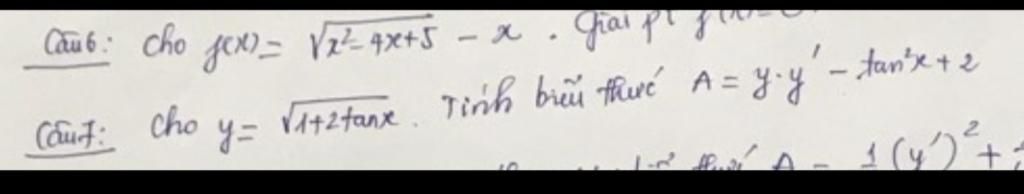 Câu 6: Cho f(x) = √(x² - 4x + 5) - x . Giải pt
Câu 7: Cho y = √(1 + 2tanx) . Tính biểu thức A = y.y' - tan²x + 2
thức A = 1 (y')² +